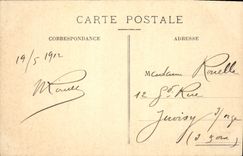 CARTE POSTALE
CORRESPONDANCE
ADRESSE
19/5 1912
Madame Rouelle
12 Gde Rue
Juvisy s/ Orge
(S &